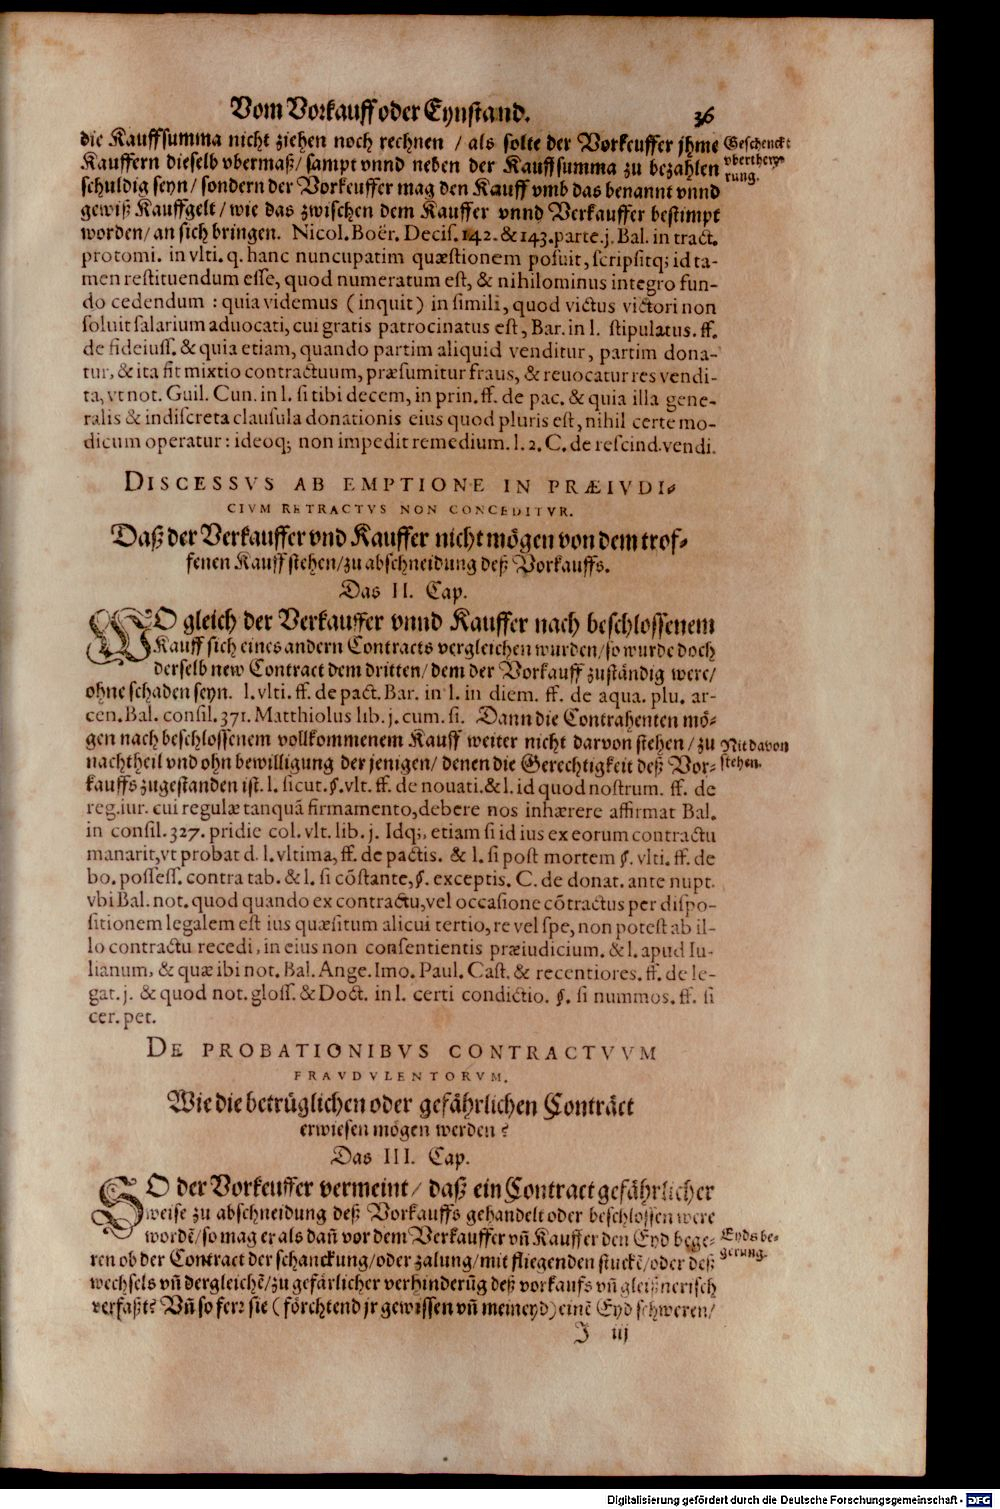 Vom Vorkauff oder Eynstand. 36
die Kauffsumma nicht ziehen noch rechnen / als solte der Vorkeuffer jhme
Kauffern dieselb vbermaß / sampt vnnd neben der Kauffsumma zu bezahlen
schuldig seyn / sondern der Vorkeuffer mag den Kauff vmb das benannt vnnd
gewiß Kauffgelt / wie das zwischen dem Kauffer vnnd Verkauffer bestimpt
worden / an sich bringen. Nicol. Boër. Decis. 142. & 143. parte. j. Bal. in tract.
protomi. in vlti. q. hanc nuncupatim quæstionem posuit, scripsitq; id ta-
men restituendum esse, quod numeratum est, & nihilominus integro fun-
do cedendum : quia videmus ( inquit ) in simili, quod victus victori non
soluit salarium aduocati, cui gratis patrocinatus est, Bar. in l. stipulatus. ff.
de fideiuss. & quia etiam, quando partim aliquid venditur, partim dona-
tur, & ita fit mixtio contractuum, præsumitur fraus, & reuocatur res vendi-
ta, vt not. Guil. Cun. in l. si tibi decem, in prin. ff. de pac. & quia illa gene-
ralis & indiscreta clausula donationis eius quod pluris est, nihil certe mo-
dicum operatur : ideoq; non impedit remedium. l. 2. C. de rescind. vendi.
Geschenckt
vbertheyr-
rung.
DISCESSVS AB EMPTIONE IN PRÆIVDI-
CIVM RETRACTVS NON CONCEDITVR.
Daß der Verkauffer vnd Kauffer nicht mögen von dem trof-
fenen Kauff stehen / zu abschneidung deß Vorkauffs.
Das II. Cap.
WO gleich der Verkauffer vnnd Kauffer nach beschlossenem
Kauff sich eines andern Contracts vergleichen wurden / so wurde doch
derselb new Contract dem dritten / dem der Vorkauff zuständig were /
ohne schaden seyn. l. vlti. ff. de pact. Bar. in l. in diem. ff. de aqua. plu. ar-
cen. Bal. consil. 371. Matthiolus lib. j. cum. si. Dann die Contrahenten mö-
gen nach beschlossenem vollkommenem Kauff weiter nicht darvon stehen / zu
nachtheil vnd ohn bewilligung der jenigen / denen die Gerechtigkeit deß Vor-
kauffs zugestanden ist. l. sicut. §. vlt. ff. de nouati. & l. id quod nostrum. ff. de
reg. iur. cui regulæ tanquā firmamento, debere nos inhærere affirmat Bal.
in consil. 327. pridie col. vlt. lib. j. Idq;, etiam si id ius ex eorum contractu
manarit, vt probat d. l. vltima, ff. de pactis. & l. si post mortem §. vlti. ff. de
bo. possess. contra tab. & l. si cōstante, §. exceptis. C. de donat. ante nupt.
vbi Bal. not. quod quando ex contractu, vel occasione cōtractus per dispo-
sitionem legalem est ius quæsitum alicui tertio, re vel spe, non potest ab il-
lo contractu recedi, in eius non consentientis præiudicium. & l. apud Iu-
lianum, & quæ ibi not. Bal. Ange. Imo. Paul. Cast. & recentiores. ff. de le-
gat. j. & quod not. gloss. & Doct. in l. certi condictio. §. si nummos. ff. si
cer. pet.
Nit davon
stehen.
DE PROBATIONIBVS CONTRACTVVM
FRAVDVLENTORVM.
Wie die betrüglichen oder gefährlichen Conträct
erwiesen mögen werden?
Das III. Cap.
SO der Vorkeuffer vermeint / daß ein Contract gefährlicher
weise zu abschneidung deß Vorkauffs gehandelt oder beschlossen were
wordē / so mag er als dañ vor dem Verkauffer vñ Kauffer den Eyd bege-
ren ob der Contract der schanckung / oder zalung / mit fliegenden stuckē / oder deß
wechsels vñ dergleichē / zu gefärlicher verhinderūg deß vorkaufs vñ gleißnerisch
verfaßt? Vñ so ferꝛ sie ( förchtend jr gewissen vñ meineyd ) einē Eyd schweren /
Eyds be-
gerung.
J iij
Digitalisierung gefördert durch die Deutsche Forschungsgemeinschaft - DFG